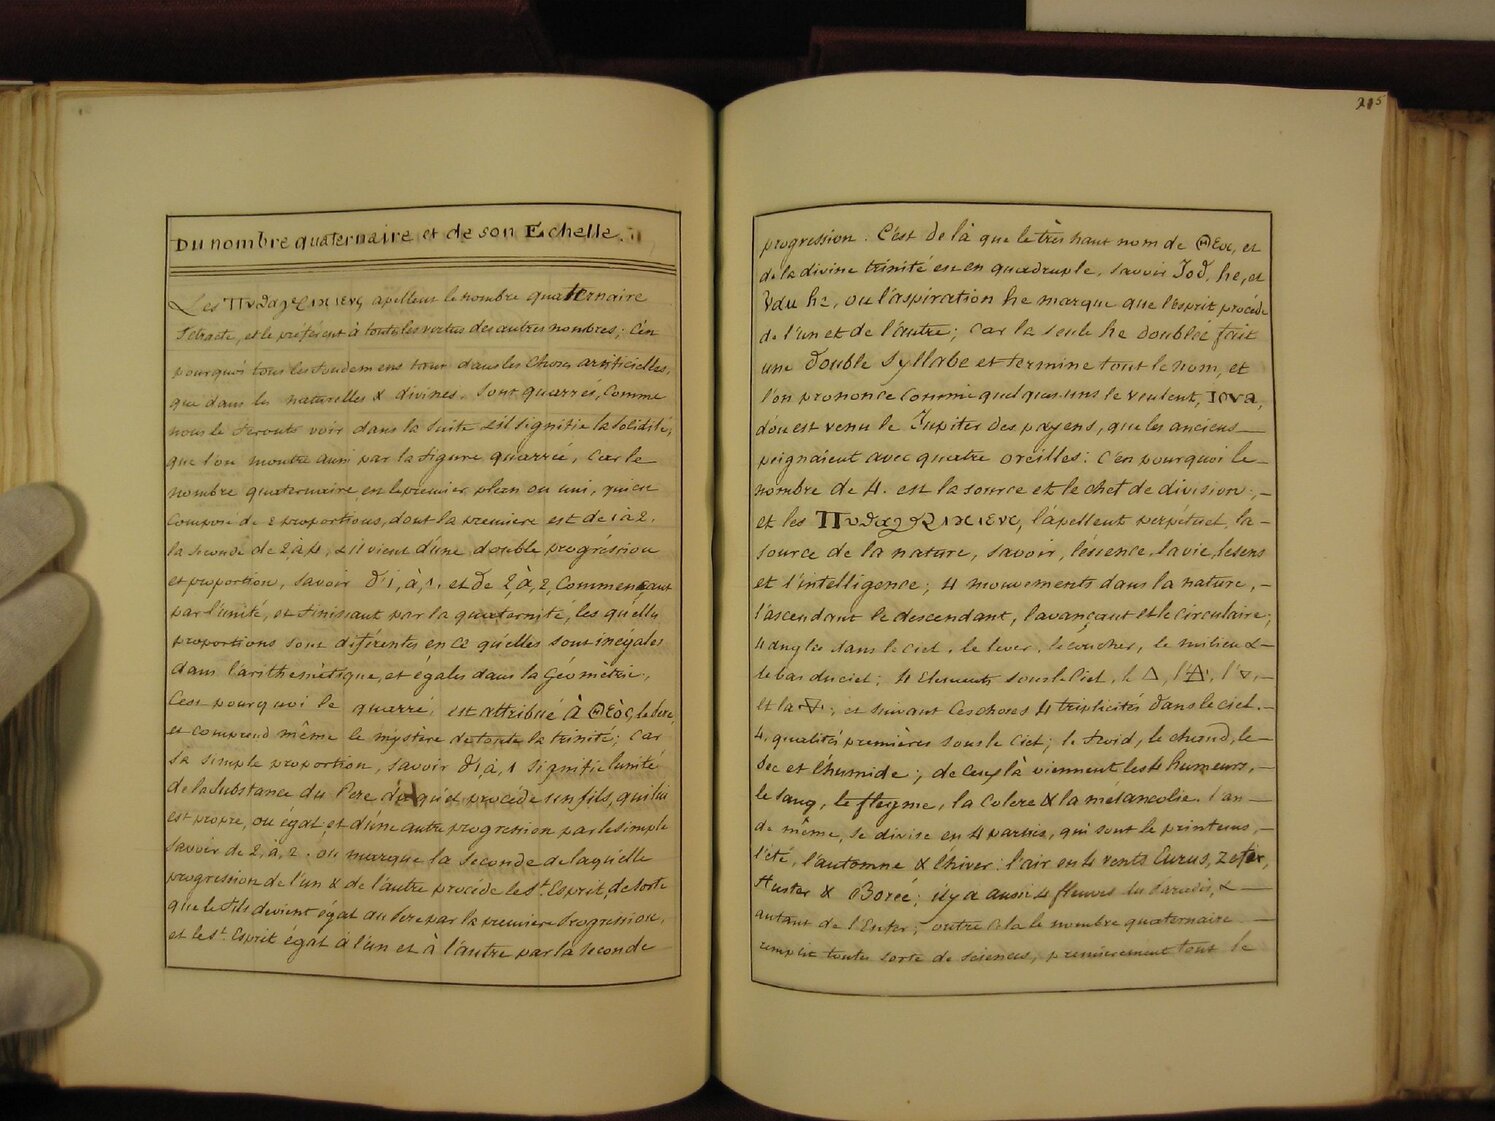 Du nombre quaternaire et de son Echelle.
Les Πυθαγορικιενς apellent le nombre quaternaire
Tetracte, et le préferent à toutes les vertus des autres nombres; C'en
pourquoi tous les fondemens tour dans les Choses artificielles,
que dans les naturelles & divines. sont quarrés, Comme
nous le ferouts voir dans la suite & il signifie la Solidité,
que l'on montre aussi par la figure quarrée, Car le
nombre quaternaire, en le premier plan ou uni, qui est
Composé de 2 proportions, dont la premiere est de 1 à 2.
la seconde de 2 à 4, & il vient d'une double progréssion
et proportion, savoir d'1, à, 1. et de 2, à, 2, Commençant
par l'unité, et finissant par la quaternité, les qu'elles
proportions sont diférentes en ce qu'elles sont inégales
dans l'arithemètique, et égales dans la Géométrie,
C'est pourquoi le quarré, est attribué à Θεὸς, le Pere,
et comprend même le mystere de toute la trinité; Car
sa simple proportion, savoir d'1, à, 1 signifie l'unité
de la Substance du Pere du qu'el procéde son fils, qui lui
est propre, ou égal et d'une autre progression par le simple
savoir de 2, à, 2. ou marque la seconde de laqu'elle
progression de l'un & de l'autre procéde le St. Esprit, de sorte
que le fils devient égal au Pere par la premiere Progression,
et le St. Esprit égal à l'un et à l'autre par la seconde
215
progression. C'est de là que le très haut nom de Θεος, et
de la divine trinité est en quadruple, savoir Iod, he, et
Vau he, ou l'aspiration he marque que l'esprit procéde
de l'un et de l'autre; Car la seule he doublée fait
une double syllabe et termine tout le nom, et
l'on prononce comme quelques uns le veulent, Ιονα,
d'ou est venu le Jupiter des payens, que les anciens
peignaient avec quatre oreilles: C'en pourquoi le
nombre de 4. est la source et le chef de division;
et les Πυθαγορικιενς, l'apellent perpétuel, la
source de la nature, savoir, l'essence, la vie, le sens
et l'intelligence; 4 mouvements dans la nature,
l'ascendant le descendant, l'avançant et le circulaire;
4 angles dans le ciel, le lever, le coucher, le milieu &
le bas du ciel; 4 Elements sous le Ciel, l △, l'🜁, l'▽,
et la 🜃; et suivant ces choses 4 triplicités dans le ciel.
4. qualités premières sous le Ciel; le froid, le chaud, le
sec et l'humide; de ceux là viennent les 4 humeurs,
le sang, le flegme, la Colere & la mélancolie. l'an
de même, se divise en 4 parties, qui sont le printems,
l'été, l'automne & l'hiver: l'air en 4 vents Eurus, Zefir,
Auster & Borée; il y a aussi 4 fleuves du Paradis, &
autant de l'Enfer; outre cela le nombre quaternaire
remplit toutes sorte de sciences, premierement tout le